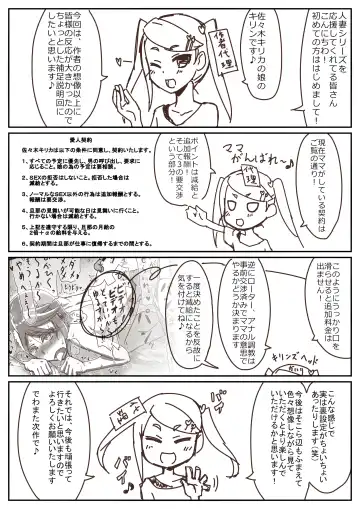 人妻シリーズを
応援してくれてる皆さん
こんにちわ！
初めての方ははじめまして！
佐々木キリカの娘の
キリンです♪
作者代理
今回は、作者の想像以上に
皆様の反応が大きかったので
ちょっとした補足説明に
したいと思います♪
現在ママがしている契約は
ご覧の通り！
ママ
がんばれ～
代理
ポイントは減給と
追加報酬！
そして3の要交渉
という部分！
愛人契約
佐々木キリカは以下の条件に同意し、契約いたします。
1、すべての予定に優先し、男の呼び出し、要求に
応じること。娘の為の予定は要相談。
2、SEXの拒否はしないこと。拒否した場合は
減給とする。
3、ノーマルなSEX以外の行為は追加報酬とする。
報酬は要交渉。
4、旦那の見舞いが可能な日は見舞いに行くこと。
行かない場合は減給とする。
5、上記を遵守する限り、旦那の月給の
2倍＋αの給料を与える。
6、契約期間は旦那が仕事に復帰するまでの間とする。
このようにうっかり口を
滑らせると追加料金は
出ません！
逆にローターとアナル調教では
事前交渉済みでママの意思で
やるかどうか決めてます
一度決めたことを反故に
すると減給になるから
気を付けてね♪
キリンズヘッド
こんな感じで
実は裏設定がちょいちょい
あったりします(笑)
今後はそこら辺もふまえて
色々想像しながら見て
いただくとより楽しんで
いただけるかと思います！
それでは、今後も頑張って
行きたいと思いますので
よろしくお願いいたします
でわまた次作で♪